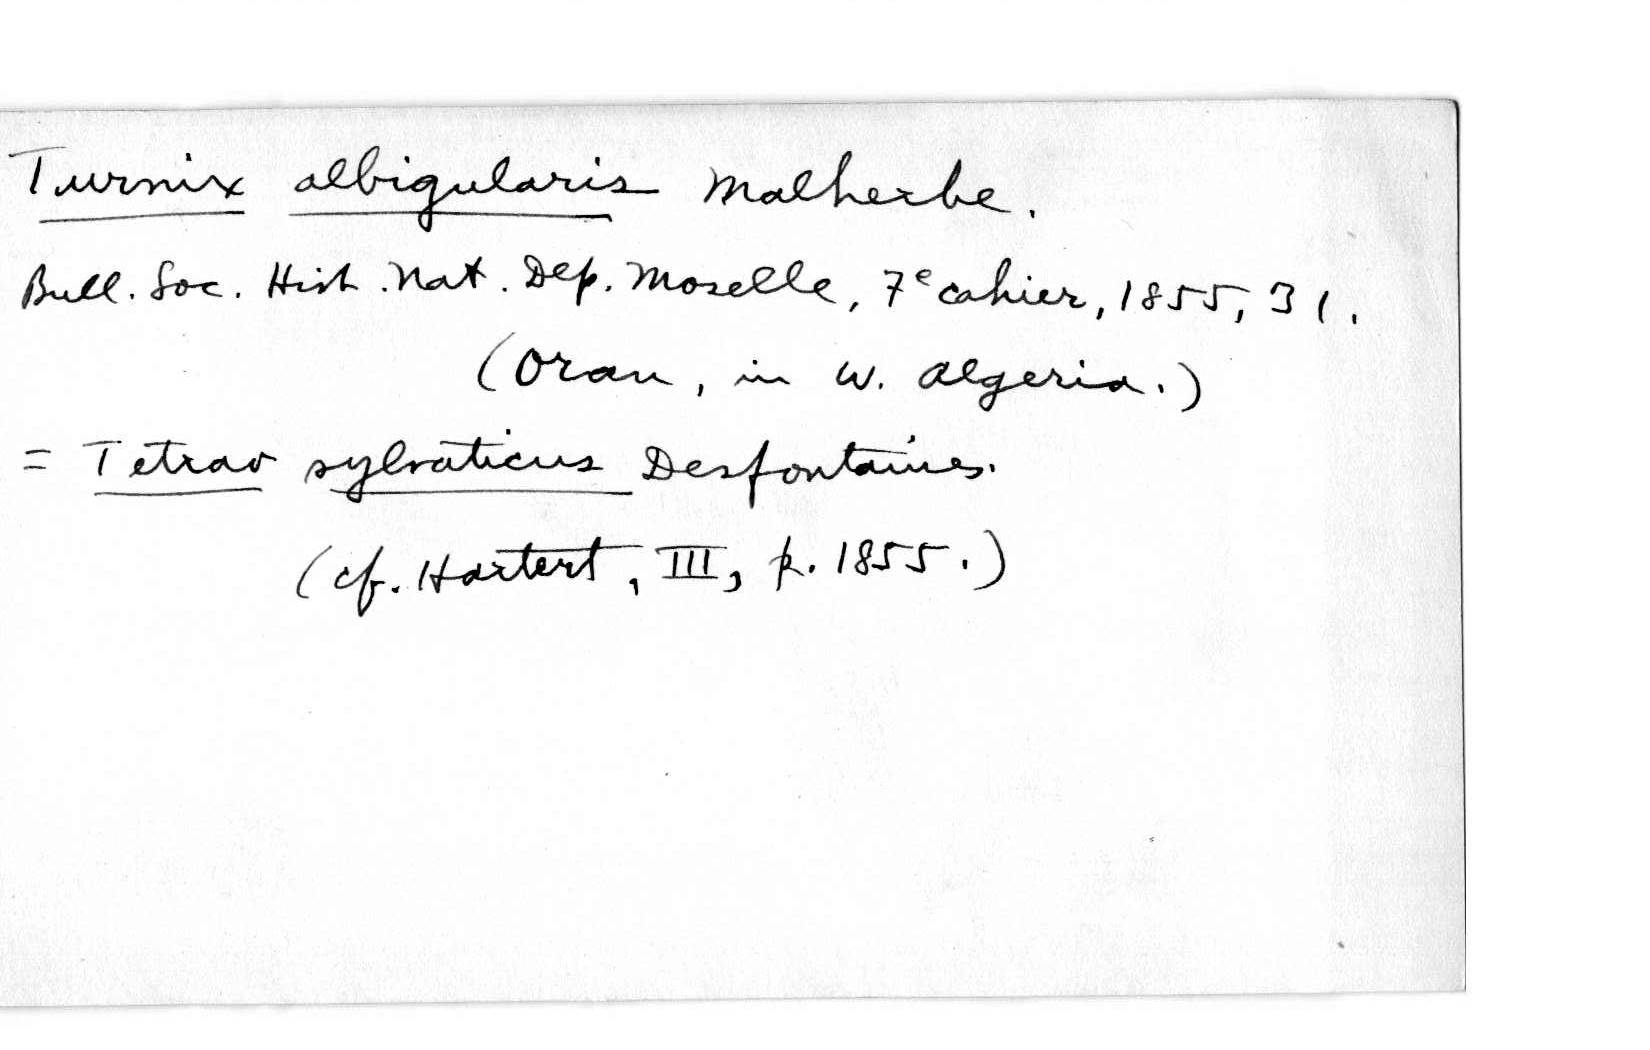 Turnix albigularis Malherbe.
Bull. Soc. Hist. Nat. Dép. Moselle, 7e cahier, 1855, 31.
(Oran, in W. Algeria.)
= Tetrao sylvaticus Desfontaines.
(cf. Hartert, III, p. 1855.)